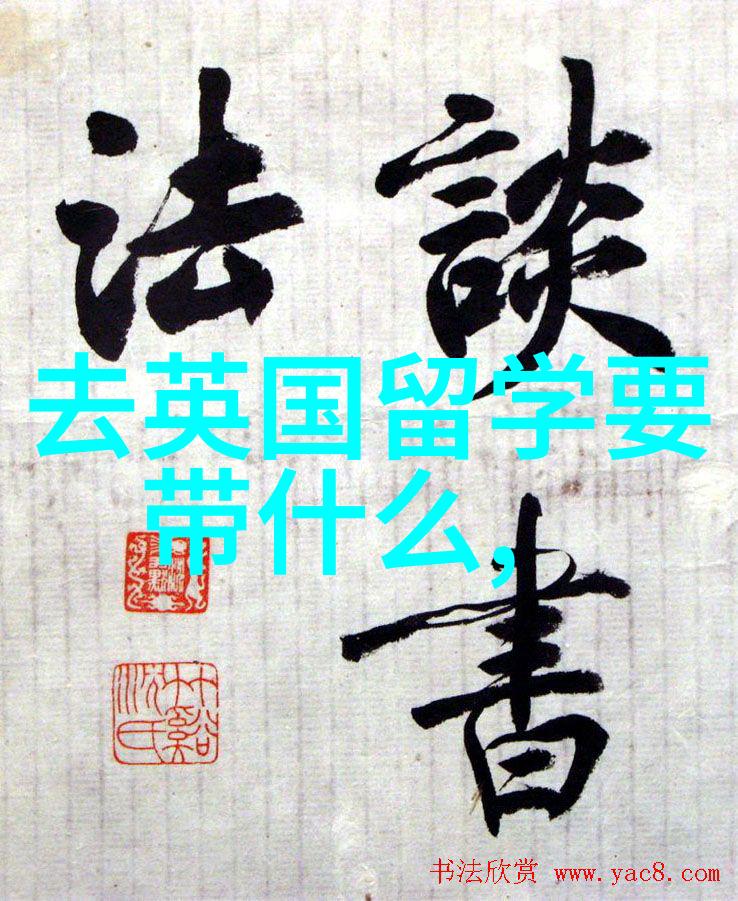 談書
法
去英国留学要
带什么,
书法欣赏 www.yac8.com